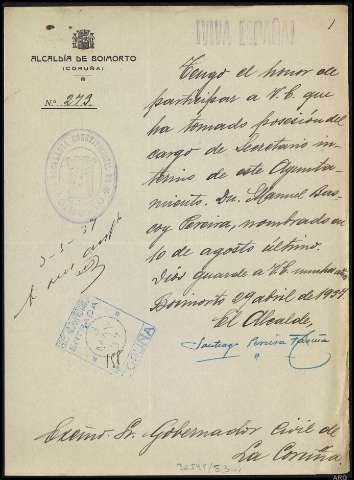 ¡VIVA ESPAÑA!
1
ALCALDÍA DE BOIMORTO
(CORUÑA)
N.º 279.
Tengo el honor de
participar a V.E. que
ha tomado posesión del
cargo de Secretario in-
terino de este Ayunta-
miento. Dn. Manuel
Pereira, nombrado en
10 de agosto último.
Dios guarde a V.E. muchos años
Boimorto 29 abril de 1937.
El Alcalde,
Santiago Pereira
3-5-37
ENTRADA
MAY
188
CORUÑA
Excmo. Sr. Gobernador Civil de
La Coruña.